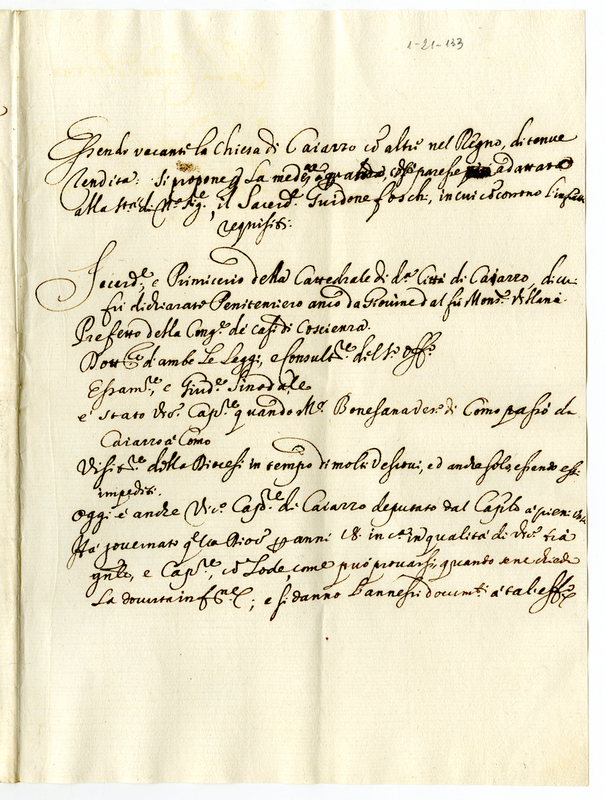 1-21-133
Essendo vacante la Chiesa di Caiazzo cō altre nel Regno, di tenue
rendita: si propone p La medeᵐᵃ adattato
alla Sᵗᵃ di Nrõ Sigʳᵉ, il Sacerdᵉ Guidone foschi, in cui cōcorrono l'infrᵗⁱ
requisiti.
Sacerdᵉ, e Primicerio della Cattedrale di dᵃ Città di Caiazzo, di cui
fù dichiarato Penitenziero anco da Giovine dal fù Monsʳ Villana
Prefetto della Congᵉ de casi di Coscienza.
Dottʳᵉ d'ambe Le Leggi, e Consultʳᵉ del Sᵗᵒ Offᵒ
Essamʳᵉ, e Giudᵉ Sinodale
e' stato Vicº Capʳᵉ quando Mʳ Bonesana Vesᵒ di Como passò da
Caiazzo a Como
Visitʳᵉ della Diocesi in tempo di molti Vescovi, ed anche solo essendo essi
impediti.
Oggi è anche Vicº Capʳᵉ di Caiazzo deputato dal Capitᵒ a pieni
Hà governato qᵗᵃ Diocⁱ p anni 18. in cᵃ in qualità di Vicº già
gñle, e Capʳᵉ, cō Lode, come può provarsi, quando se ne chiede
La dovuta inf.ⁿᵉ; e si danno l'annessi documᵗⁱ a tal' effᵒ